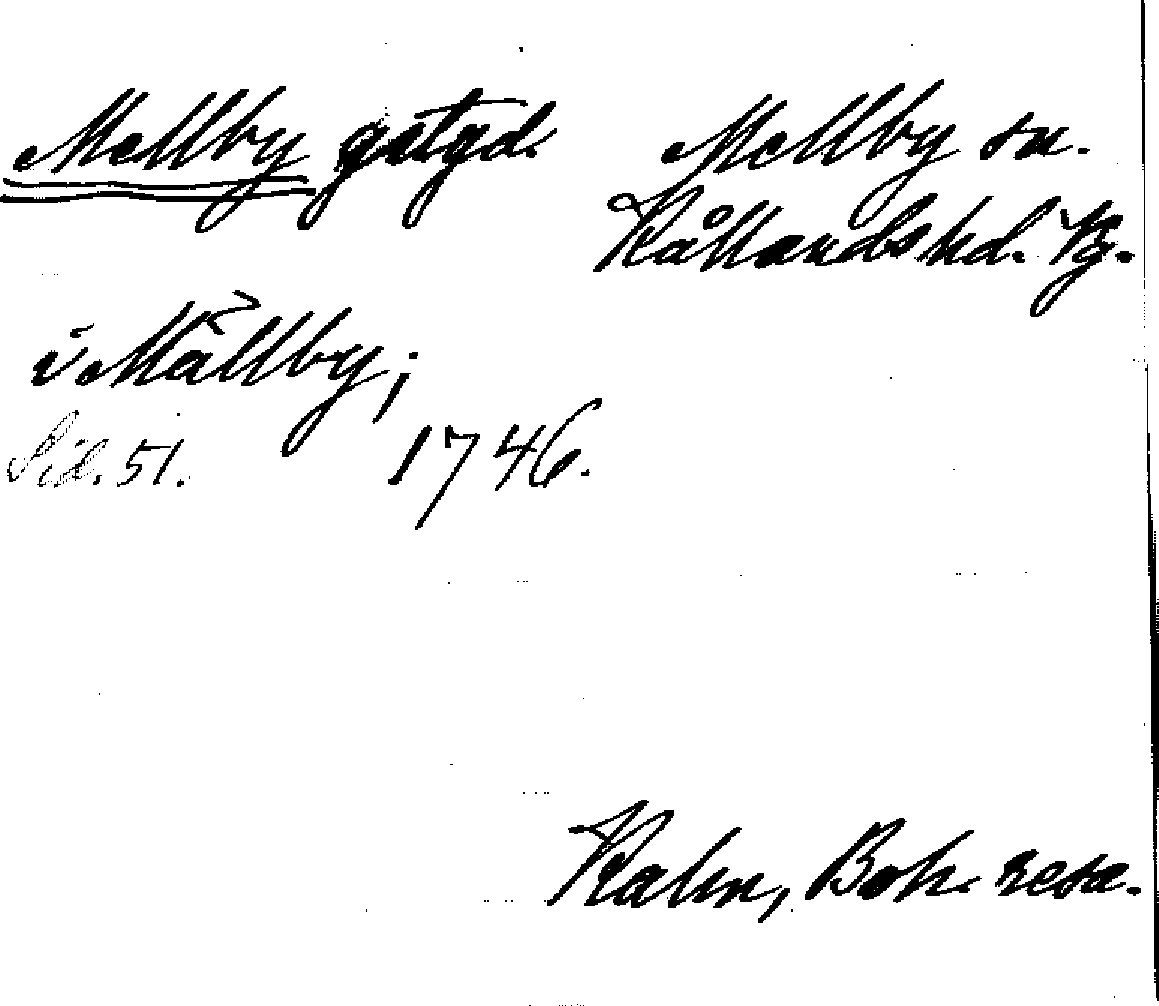 Mellby gstgd. Mellby sn.
Kållands hd. Vg.
i Mällby;
Sid. 51. 1746.
Kalm, Boh. resa.